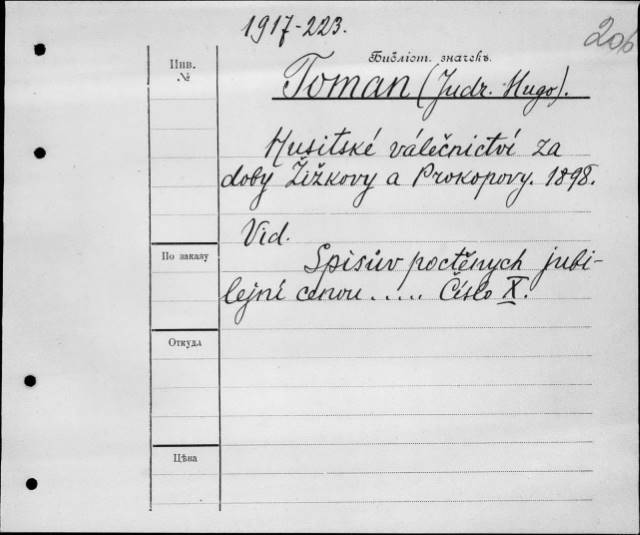 1917-223.
206
Библіот. значекъ
Инв.
№
Toman (Judr. Hugo).
Husitské válečnictví za
doby Žižkovy a Prokopovy. 1898.
Vid.
По заказу
Spisův poctěnych jubi-
lejné cenou..... Číslo X.
Откуда
Цѣна